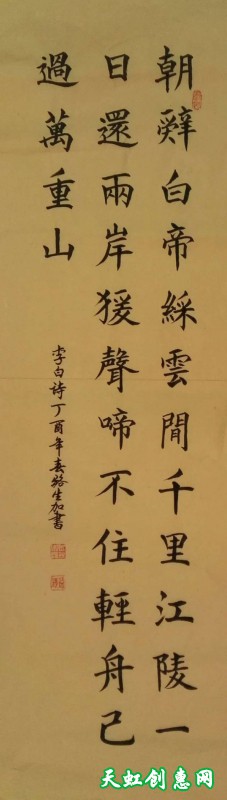 朝辤白帝綵雲間千里江陵一
日還兩岸猨聲啼不住輕舟已
過萬重山
李白詩丁酉年春路生加書
天虹创惠网